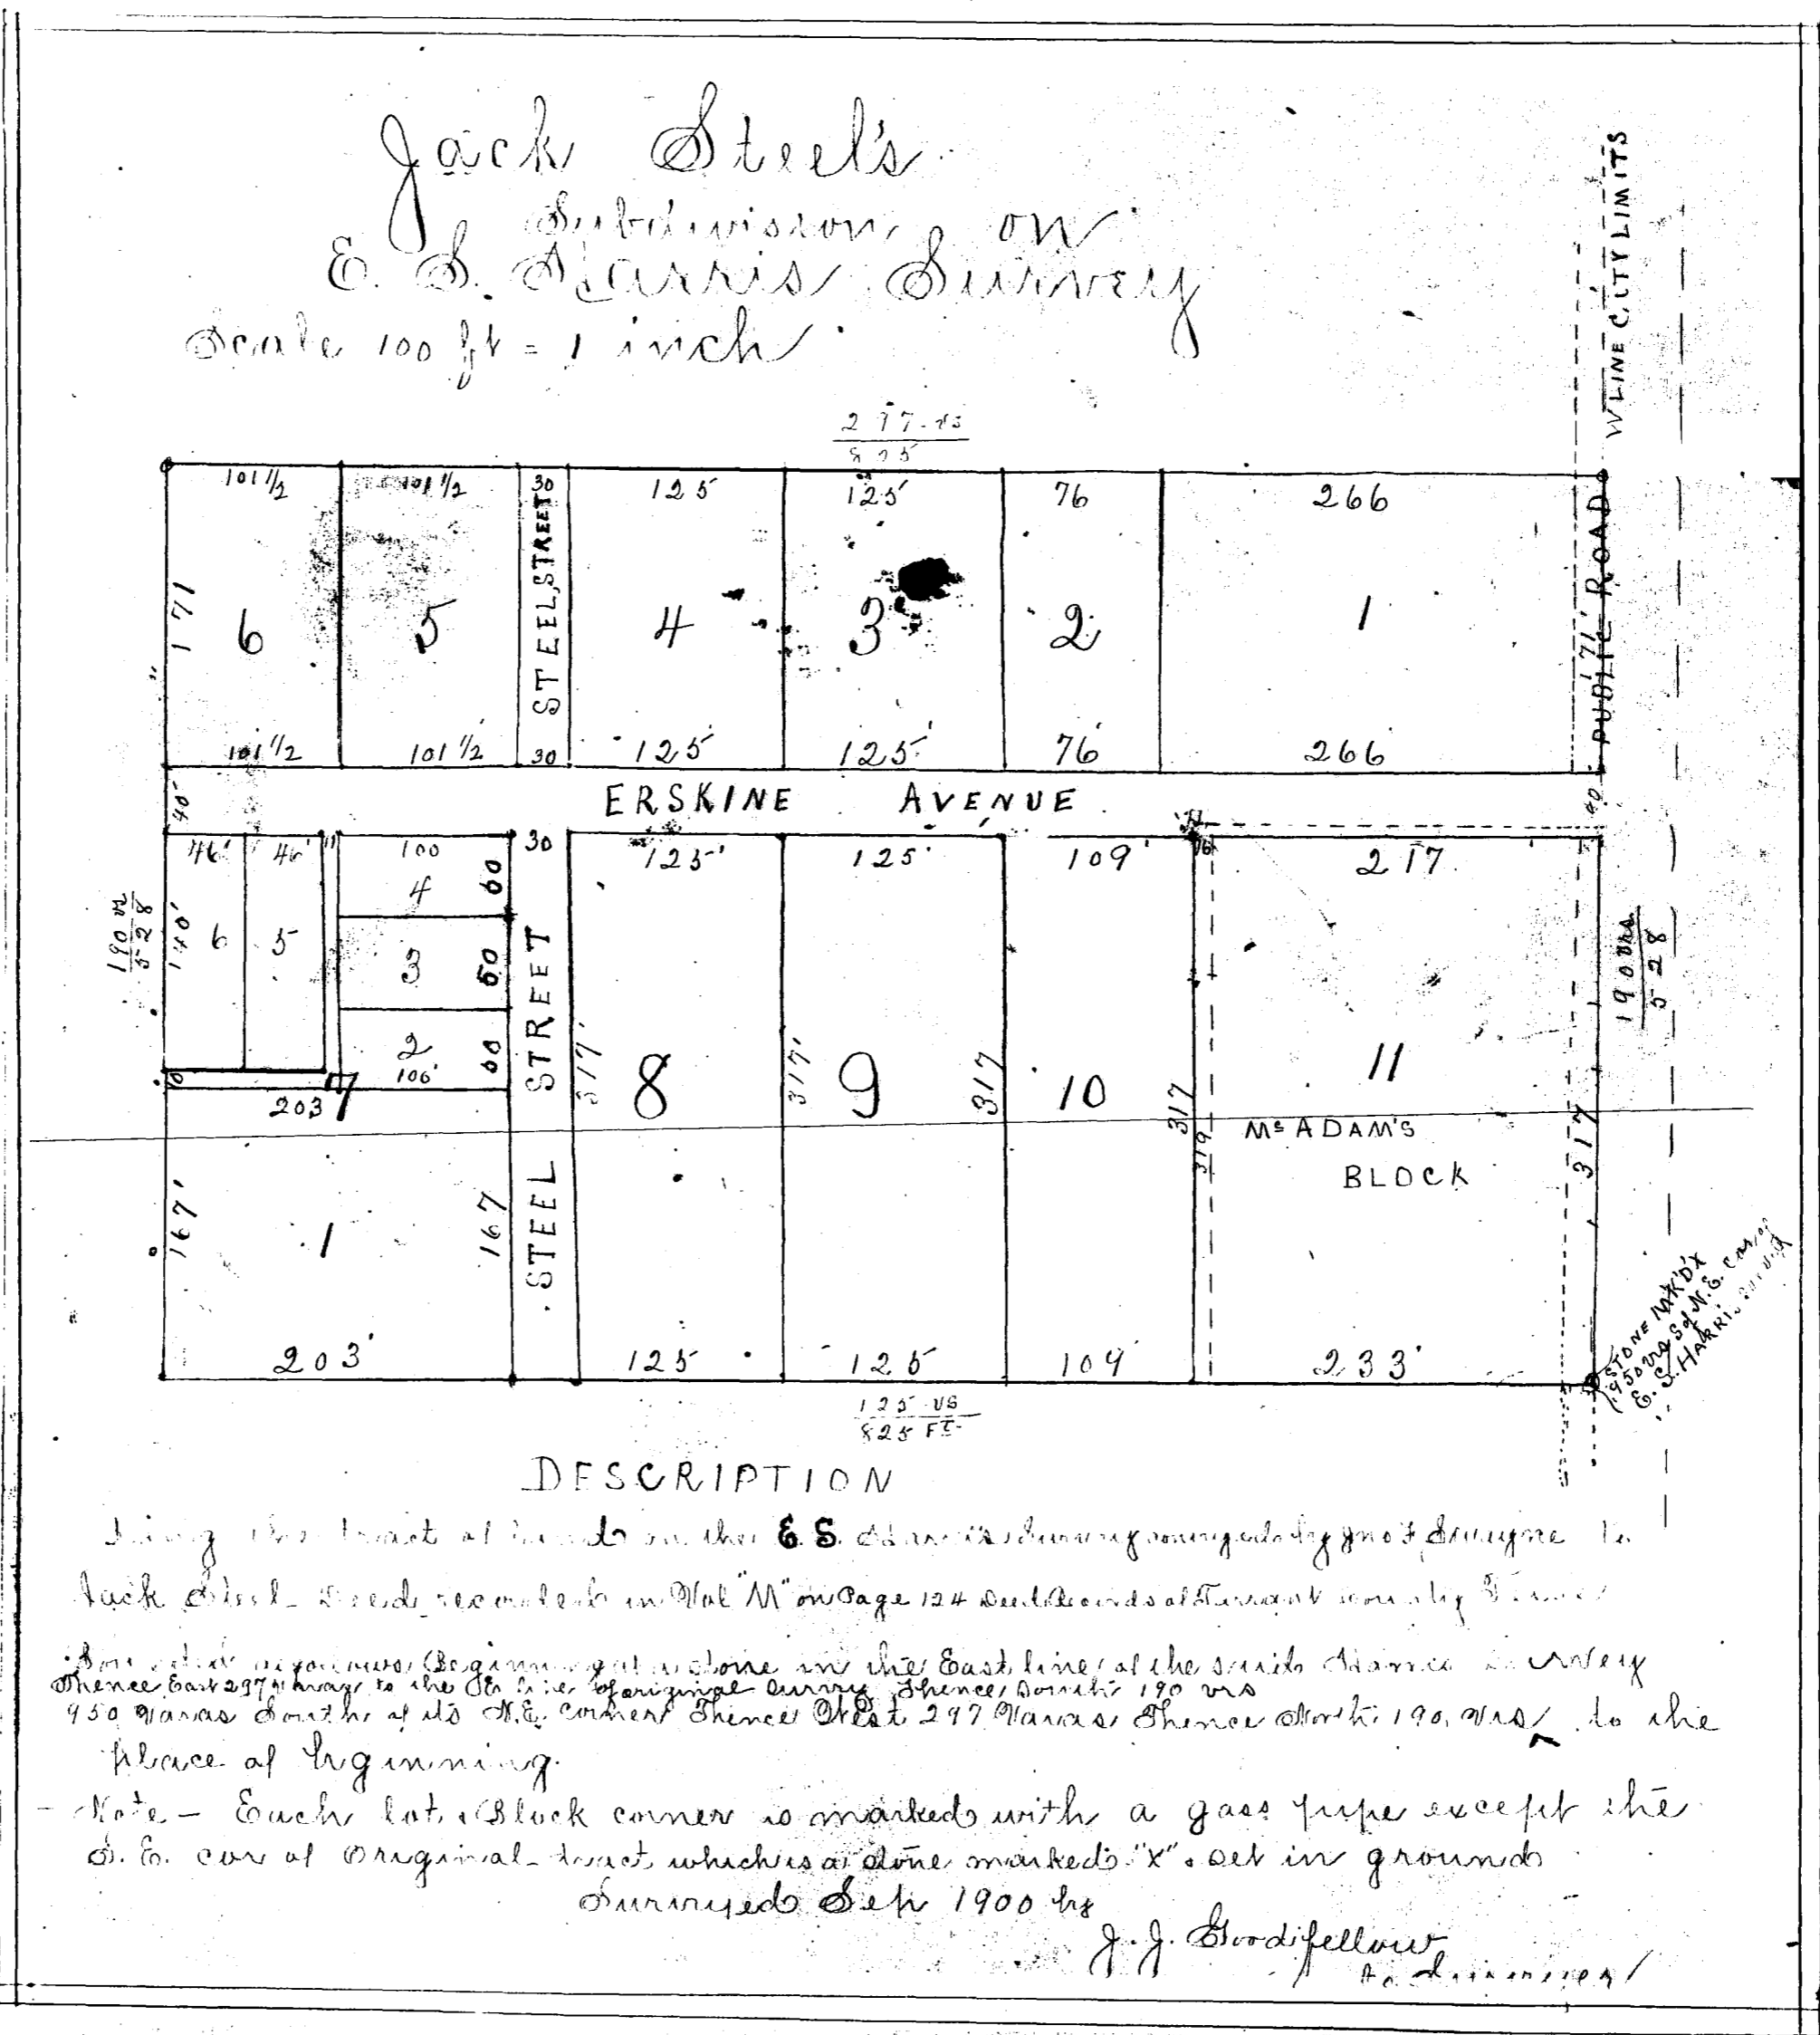 Jack Steel's
Subdivision on
E. S. Harris Survey
Scale 100 ft = 1 inch
W LINE CITY LIMITS
297 vs
825
101 1/2
101 1/2
30
125
125
76
266
171
6
5
STEEL STREET
4
3
2
1
171
PUBLIC ROAD
101 1/2
101 1/2
30
125
125
76
266
40
ERSKINE AVENUE
40
46'
46'
11
100
30
125'
125'
109'
16
217
4
60
190 vs
528
140'
6
5
3
60
2
60
106
10
203
7
STEEL STREET
317'
8
317'
9
317
10
317
319
11
McADAM'S
BLOCK
317
190 vrs
528
167'
1
167
203'
125
125
109
233'
STONE MK'D X
950 vrs S of N.E. Cor of
E. S. HARRIS Survey
125 VS
825 FT
DESCRIPTION
Being the tract of land on the E. S. Harris Survey conveyed by Jno F Swayne to
Jack Steel Deed recorded in Vol "M" on Page 124 Deed Records of Tarrant County
as follows, Beginning at a stone in the East line of the said Harris Survey
Thence East 297 varas to the line of original survey Thence South 190 vrs
950 Varas South of its N.E. corner Thence West 297 Varas Thence North 190 Vrs to the
place of beginning.
Note - Each lot & Block corner is marked with a gass pipe except the
S. E. cor of Original tract which is a stone marked "X" & set in ground
Surveyed Sep 1900 by
J. J. Goodfellow